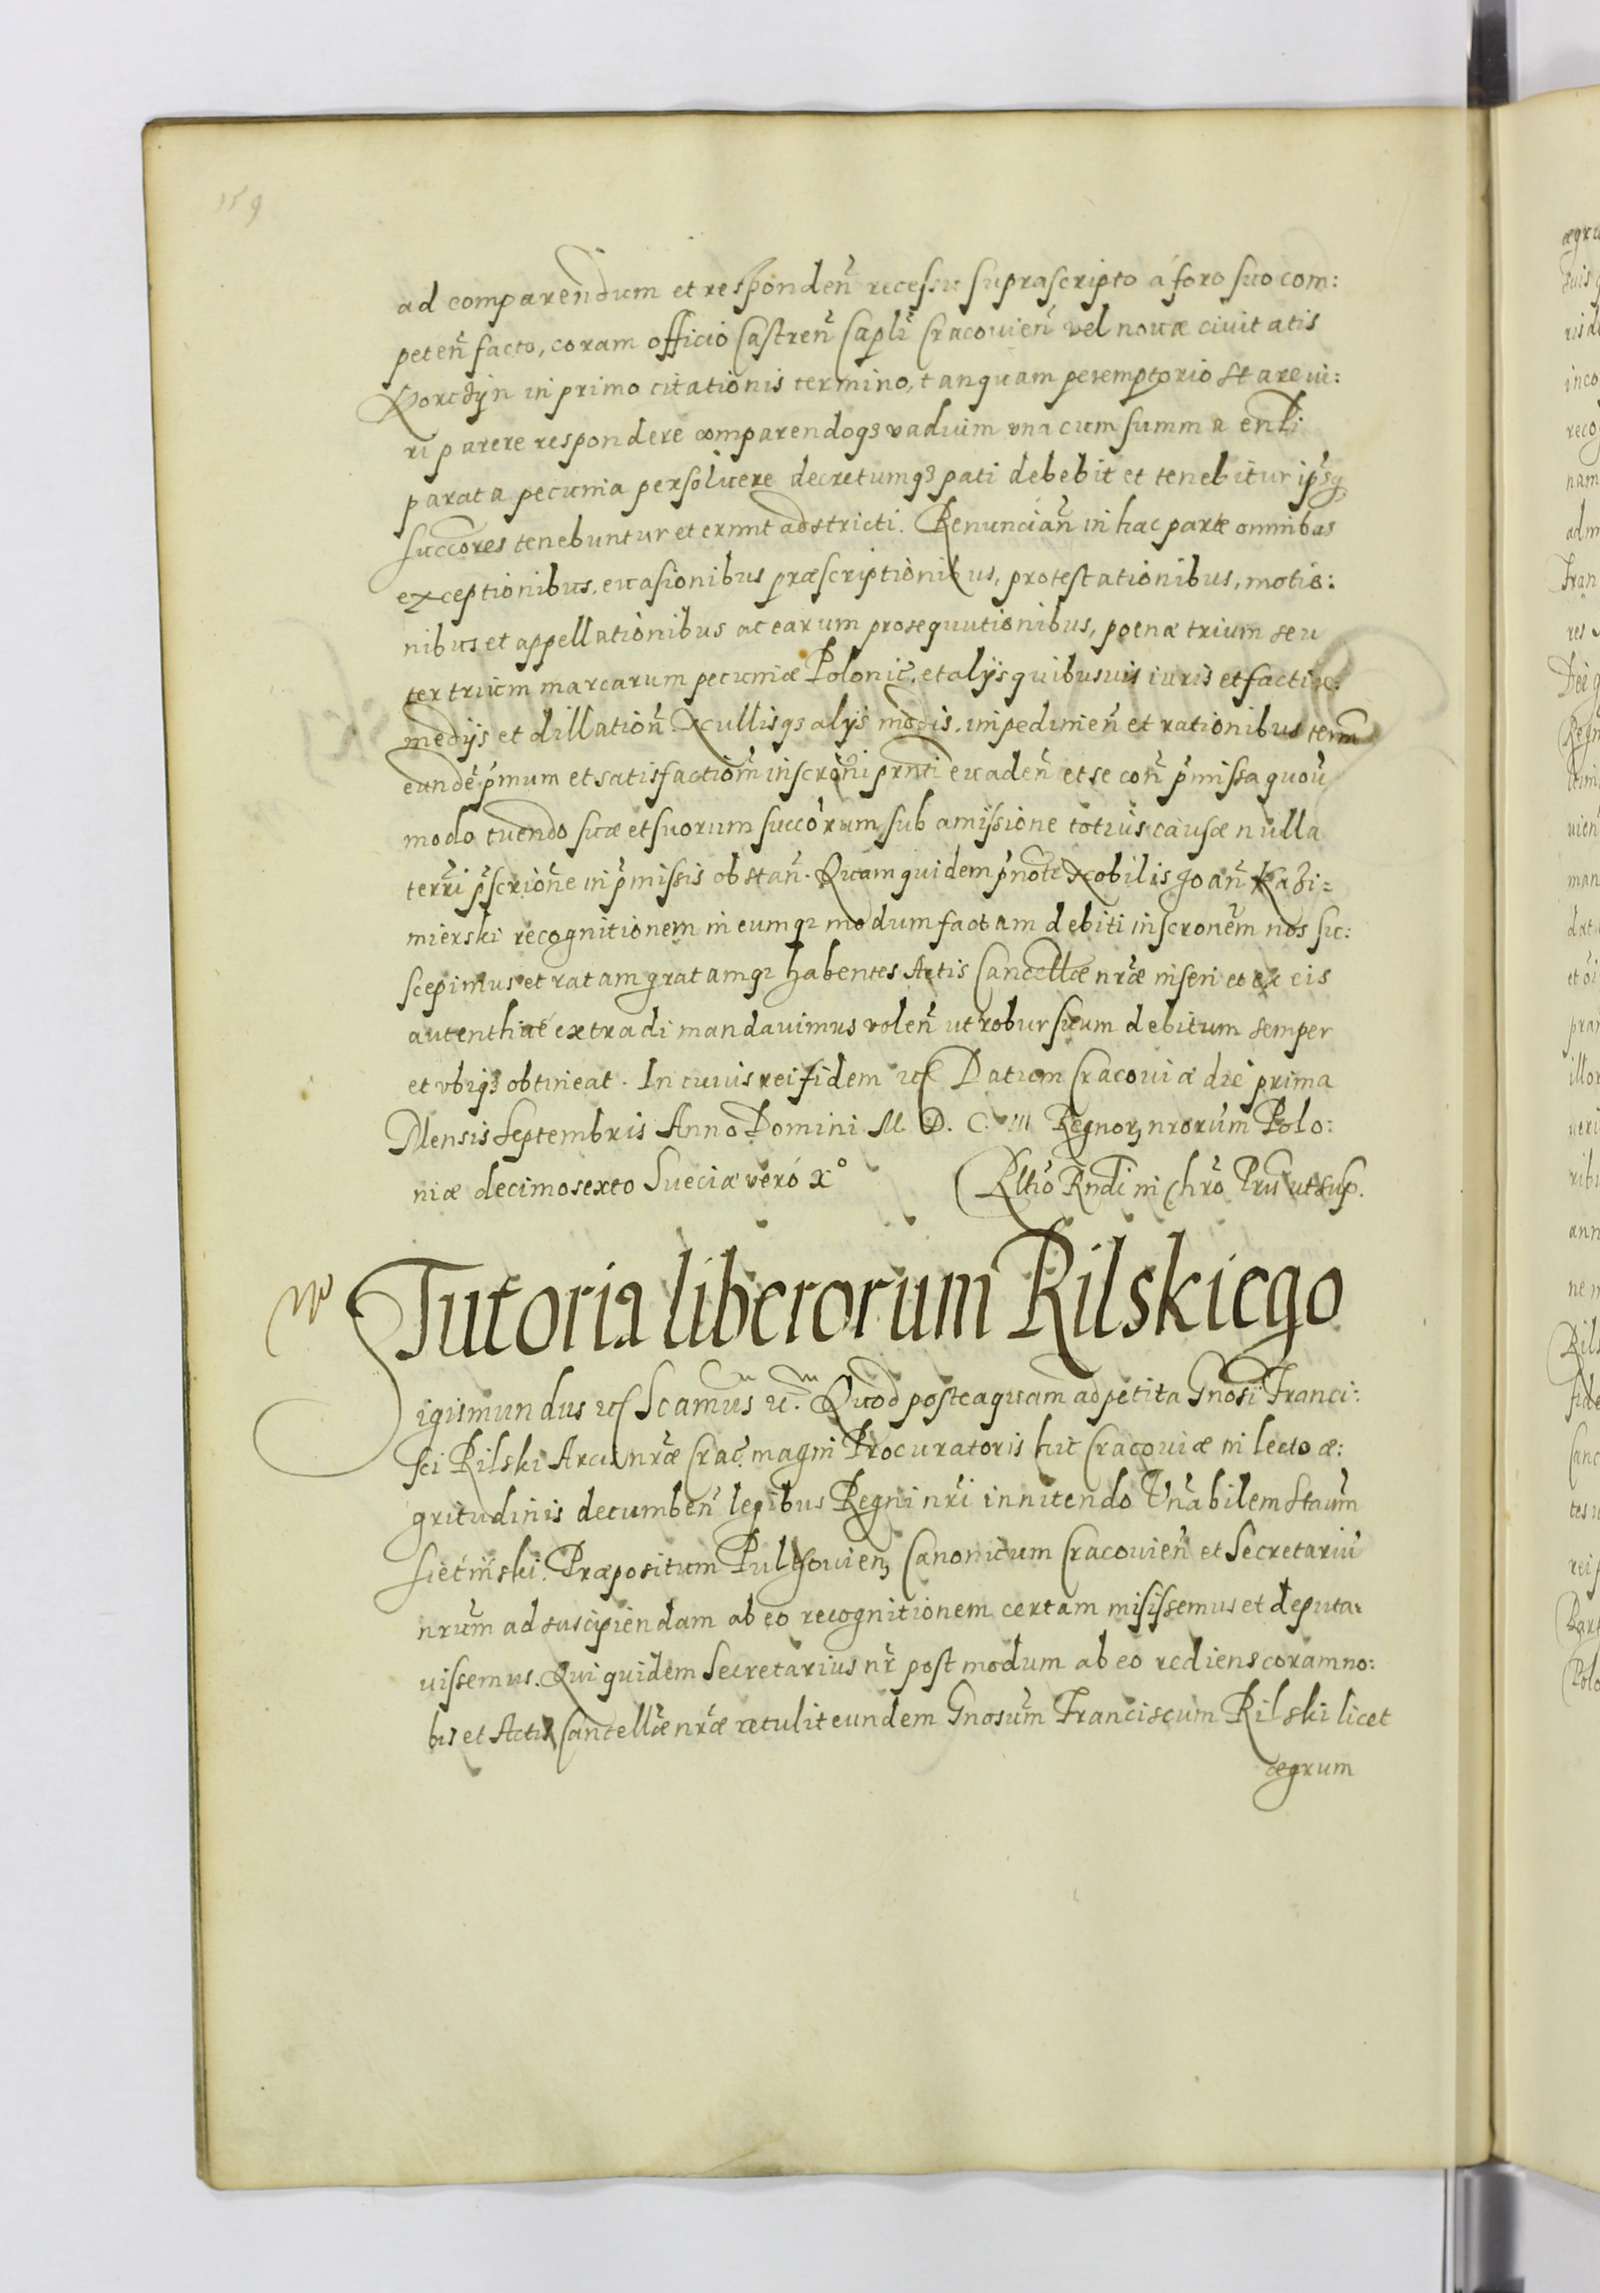 159
ad comparendum et responden̄ recessu suprascripto á foro suo com:
peten̄ facto, coram officio Castren̄ Capl̄i Cracovien̄ vel novæ civitatis
Korczÿn in primo citationis termino, tanquam peremptorio stare iu:
ri parere respondere comparendoqꝫ vadium vna cum summa
parata pecunia persoluere decretumqꝫ pati debebit et tenebitur ip̄sqꝫ
succ̄ores tenebuntur et erunt adstricti. Renuncian̄ in hac parte omnibus
exceptionibus, euasionibus præscriptionibus, protestationibus, motio:
nibus et appellationibus ac earum prosequutionibus, poenæ trium seu
ter trium marcarum pecuniæ Polonic̄, et alijs quibusuis iuris et facti re:
medijs et dillation̄ Nullisqꝫ alijs modis, impedimen̄ et rationibus term̄
eundē p̄mum et satisfaction̄ inscrōni pn̄ti euaden̄ et se con̄ p̄missa quoū
modo tuendo suæ et suorum succ̄orum sub amissione totius causæ nulla
terr̄i p̄scrion̄e in p̄missis obstan̄. Quam quidem p̄nōti Nobilis Joan̄ Kazi=
mierski recognitionem in eumqꝫ modum factam debiti inscronēm nos su:
scepimus et ratam gratamqꝫ habentes Actis Cancellæ nr̄æ inseri et ex eis
autenthicé extradi mandauimus volen̄ ut robur suum debitum semper
et vbiqꝫ obtineat. In cuius rei fidem etc Datum Cracoviæ die prima
Mensis Septembris Anno Domini M. D. C. III Regnorꝫ nrorūm Polo:
niæ decimosexto Sueciæ veró Xº Rltīo Rndi in Chrō Pris ut sup.
Tutoria liberorum Rilskiego
Sigismundus etc Scamus etc. Quod posteaquam ad petita Gnosi Franci:
sci Rilski Arcis nr̄æ Crac̄. magni Procuratoris hic Cracoviæ in lecto æ:
gritudinis decumben̄ legibus Regni nr̄i innitendo Vn̄abilem Staūm
Siecinski. Præpositum Pultouienꝫ Canonicum Cracovien̄ et Secretariū
nrūm ad suscipiendam ab eo recognitionem certam misissemus et deputa:
uissemus. Qui quidem Secretarius nr̄ post modum ab eo rediens coram no:
bis et Actis Cancellæ nr̄æ retulit eundem Gnosūm Franciscum Rilski licet
ægrum